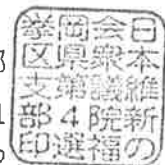 日本維新の
会衆議院福
岡県第4選
挙区支部印